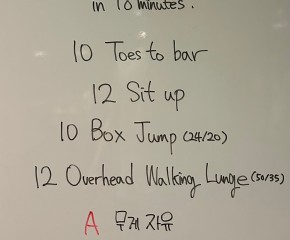 in 18 minutes.
10 Toes to bar
12 Sit up
10 Box Jump (24/20)
12 Overhead Walking Lunge (50/35)
A 무게 자유